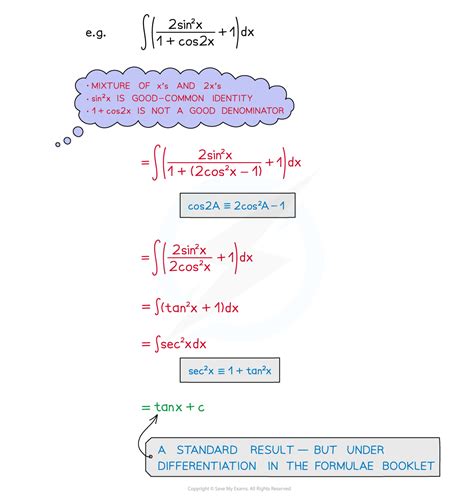 e.g. ∫(2sin²x/(1 + cos2x) + 1)dx
• MIXTURE OF x's AND 2x's
• sin²x IS GOOD–COMMON IDENTITY
• 1 + cos2x IS NOT A GOOD DENOMINATOR
= ∫(2sin²x/(1 + (2cos²x − 1)) + 1)dx
cos2A ≡ 2cos²A − 1
= ∫(2sin²x/2cos²x + 1)dx
= ∫(tan²x + 1)dx
= ∫sec²xdx
sec²x ≡ 1 + tan²x
= tanx + c
A STANDARD RESULT — BUT UNDER
DIFFERENTIATION IN THE FORMULAE BOOKLET
Copyright © Save My Exams. All Rights Reserved